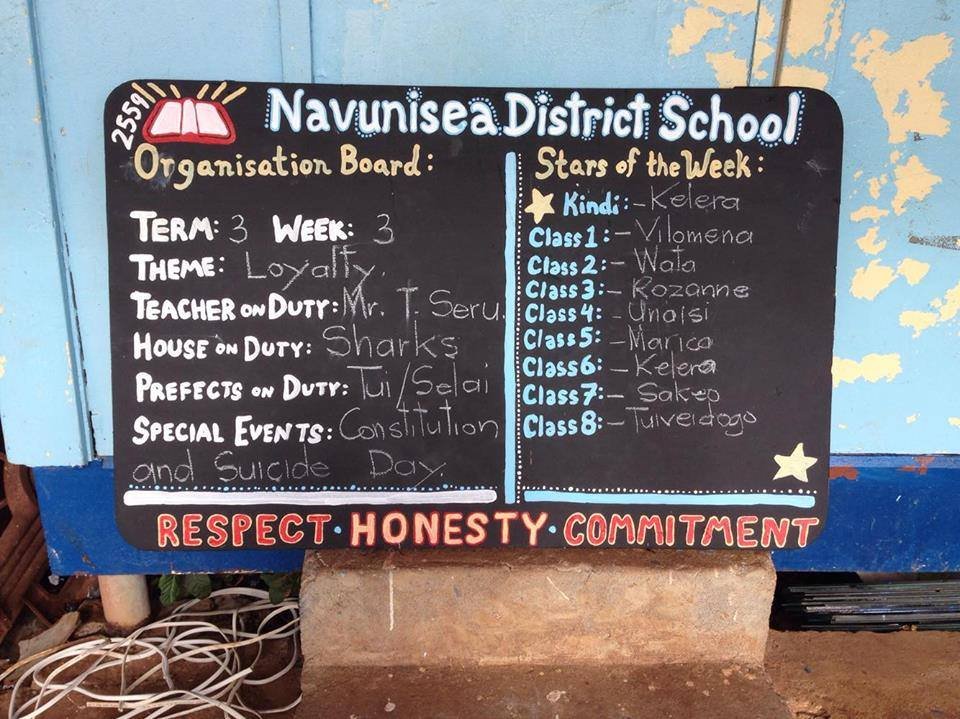 2559
Navunisea District School
Organisation Board:
TERM: 3 WEEK: 3
THEME: Loyalty.
TEACHER ON DUTY: Mr. T. Seru.
HOUSE ON DUTY: Sharks
PREFECTS ON DUTY: Tui/Selai
SPECIAL EVENTS: Constitution
and Suicide Day
Stars of the Week:
Kindi:- Kelera
Class 1:- Vilomena
Class 2:- Wata
Class 3:- Rozanne
Class 4:- Unaisi
Class 5:- Marica
Class 6:- Kelera
Class 7:-
Class 8:- Tuiveidogo
RESPECT · HONESTY · COMMITMENT